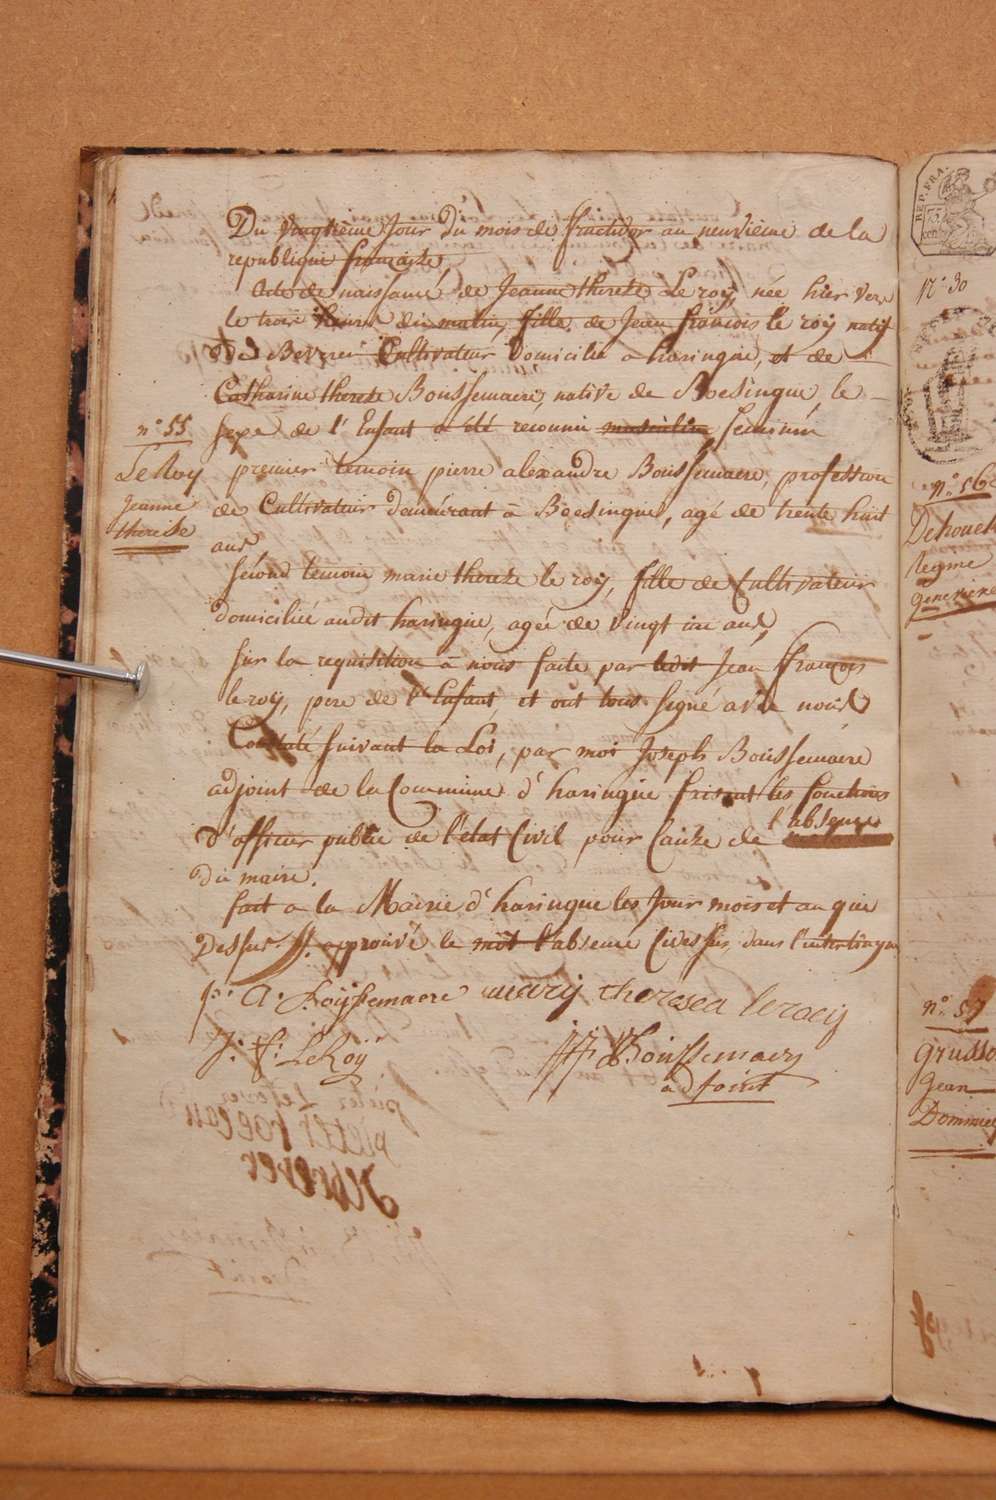 Du vingtième Jour du mois de fructidor an neuvième de la
republique française
Acte de naissance de Jeanne thereze Le roy, née hier vers
le trois heures du matin, fille de Jean françois le roy natif
de Beveren Cultivateur Domicilié a haringue, et de
Catharine thereze Boussemaere, native de Boesingue, le
sexe de l'Enfant a été reconnu masculin feminin
n° 55
LeRoy
Jeanne
therese
premier temoin pierre alexandre Boussemaere, profession
de Cultivateur demeurant à Boesingue, agé de trente huit
ans
second temoin marie thereze le roy, fille de Cultivateur
domiciliée audit haringue, agée de vingt ans,
sur la requisition à nous faite par ledit Jean françois
le roy, pere de l'Enfant, et ont tous signé avec nous
Constaté suivant la Loi, par moi Joseph Boussemaere
adjoint de la Commune d'haringue faisant les fonctions
d'officier public de l'état Civil pour Cauze de l'absence
du maire.
fait a la Mairie d'haringue les Jour mois et an que
Dessus. approuvé le mot l'absence Cidessus, dans l'interligne
p: A: Boussemaere mary theresea leroey
J: f: LeRoÿ
Boussemaere
adjoint
REP. FRA.
n° 30
n° 56
Dehouck
Regine
genevieve
n° 57
grusso
Jean
Dominic